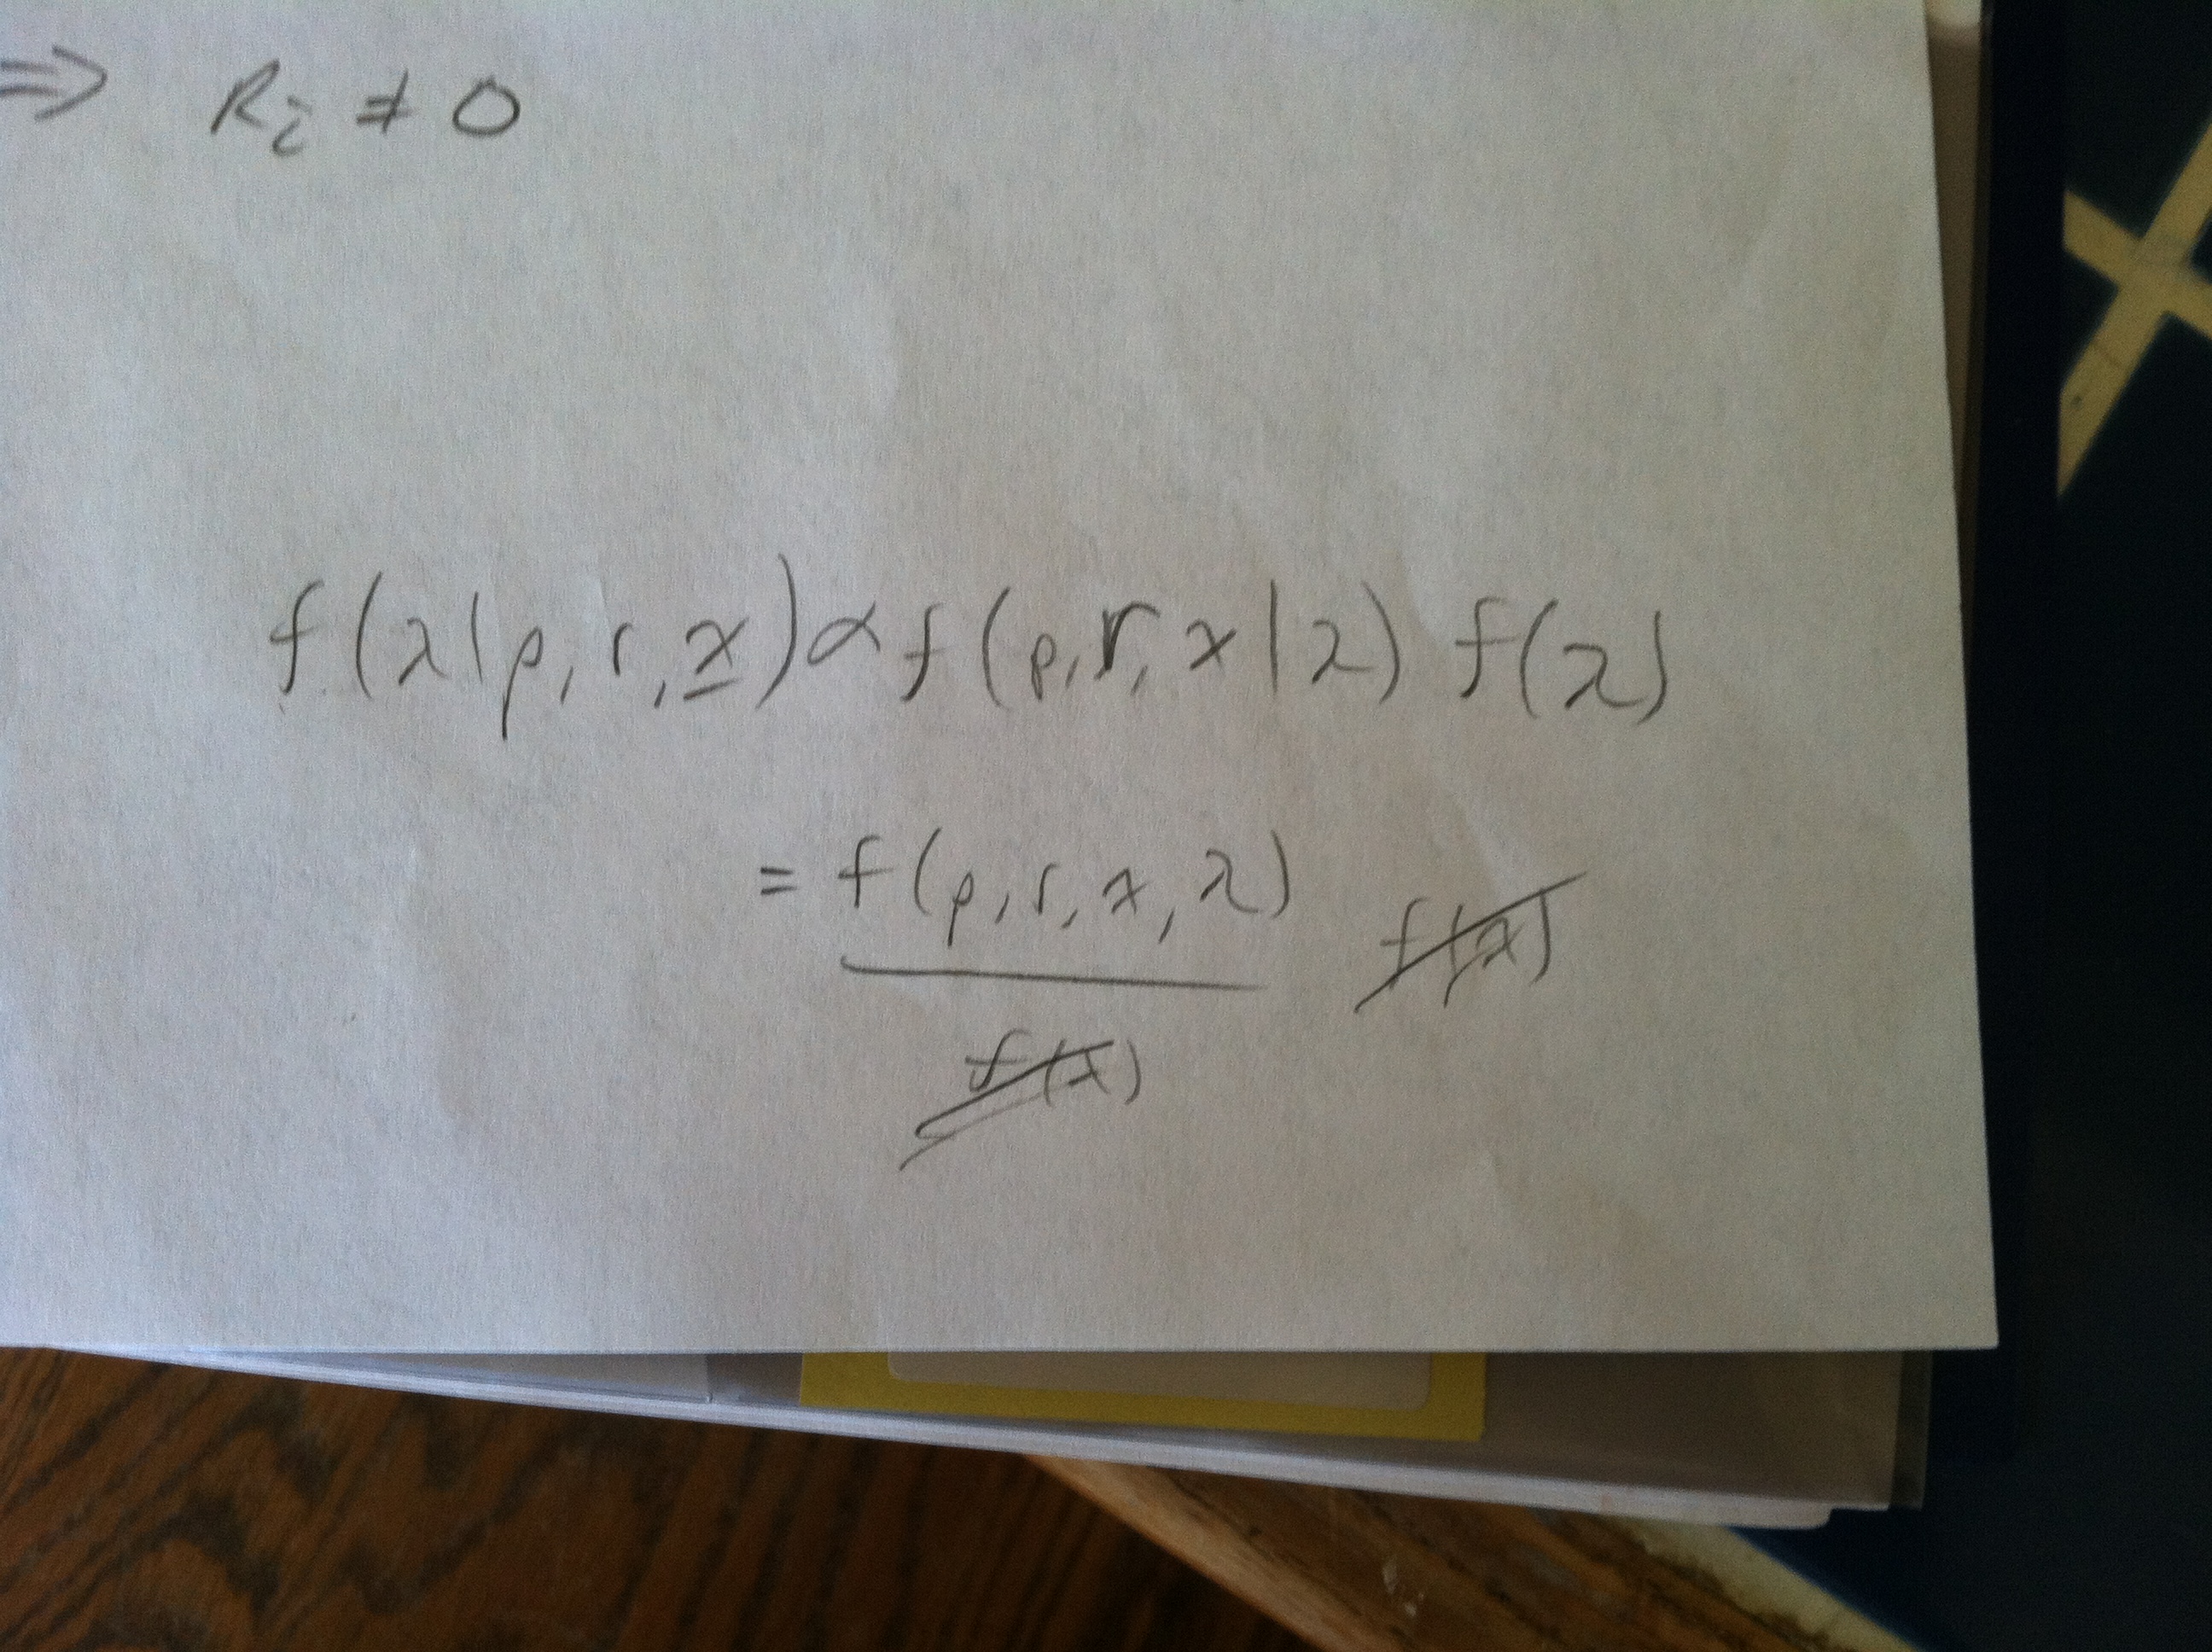 ⇒ Rᵢ ≠ 0
f(λ|p, r, x̲) ∝ f(p, r, x|λ) f(λ)
= f(p, r, x, λ) f(λ)
f(λ)